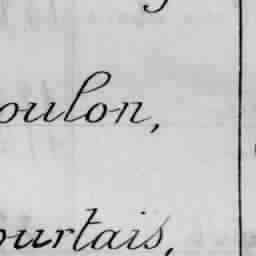 oulon,
ourtais,